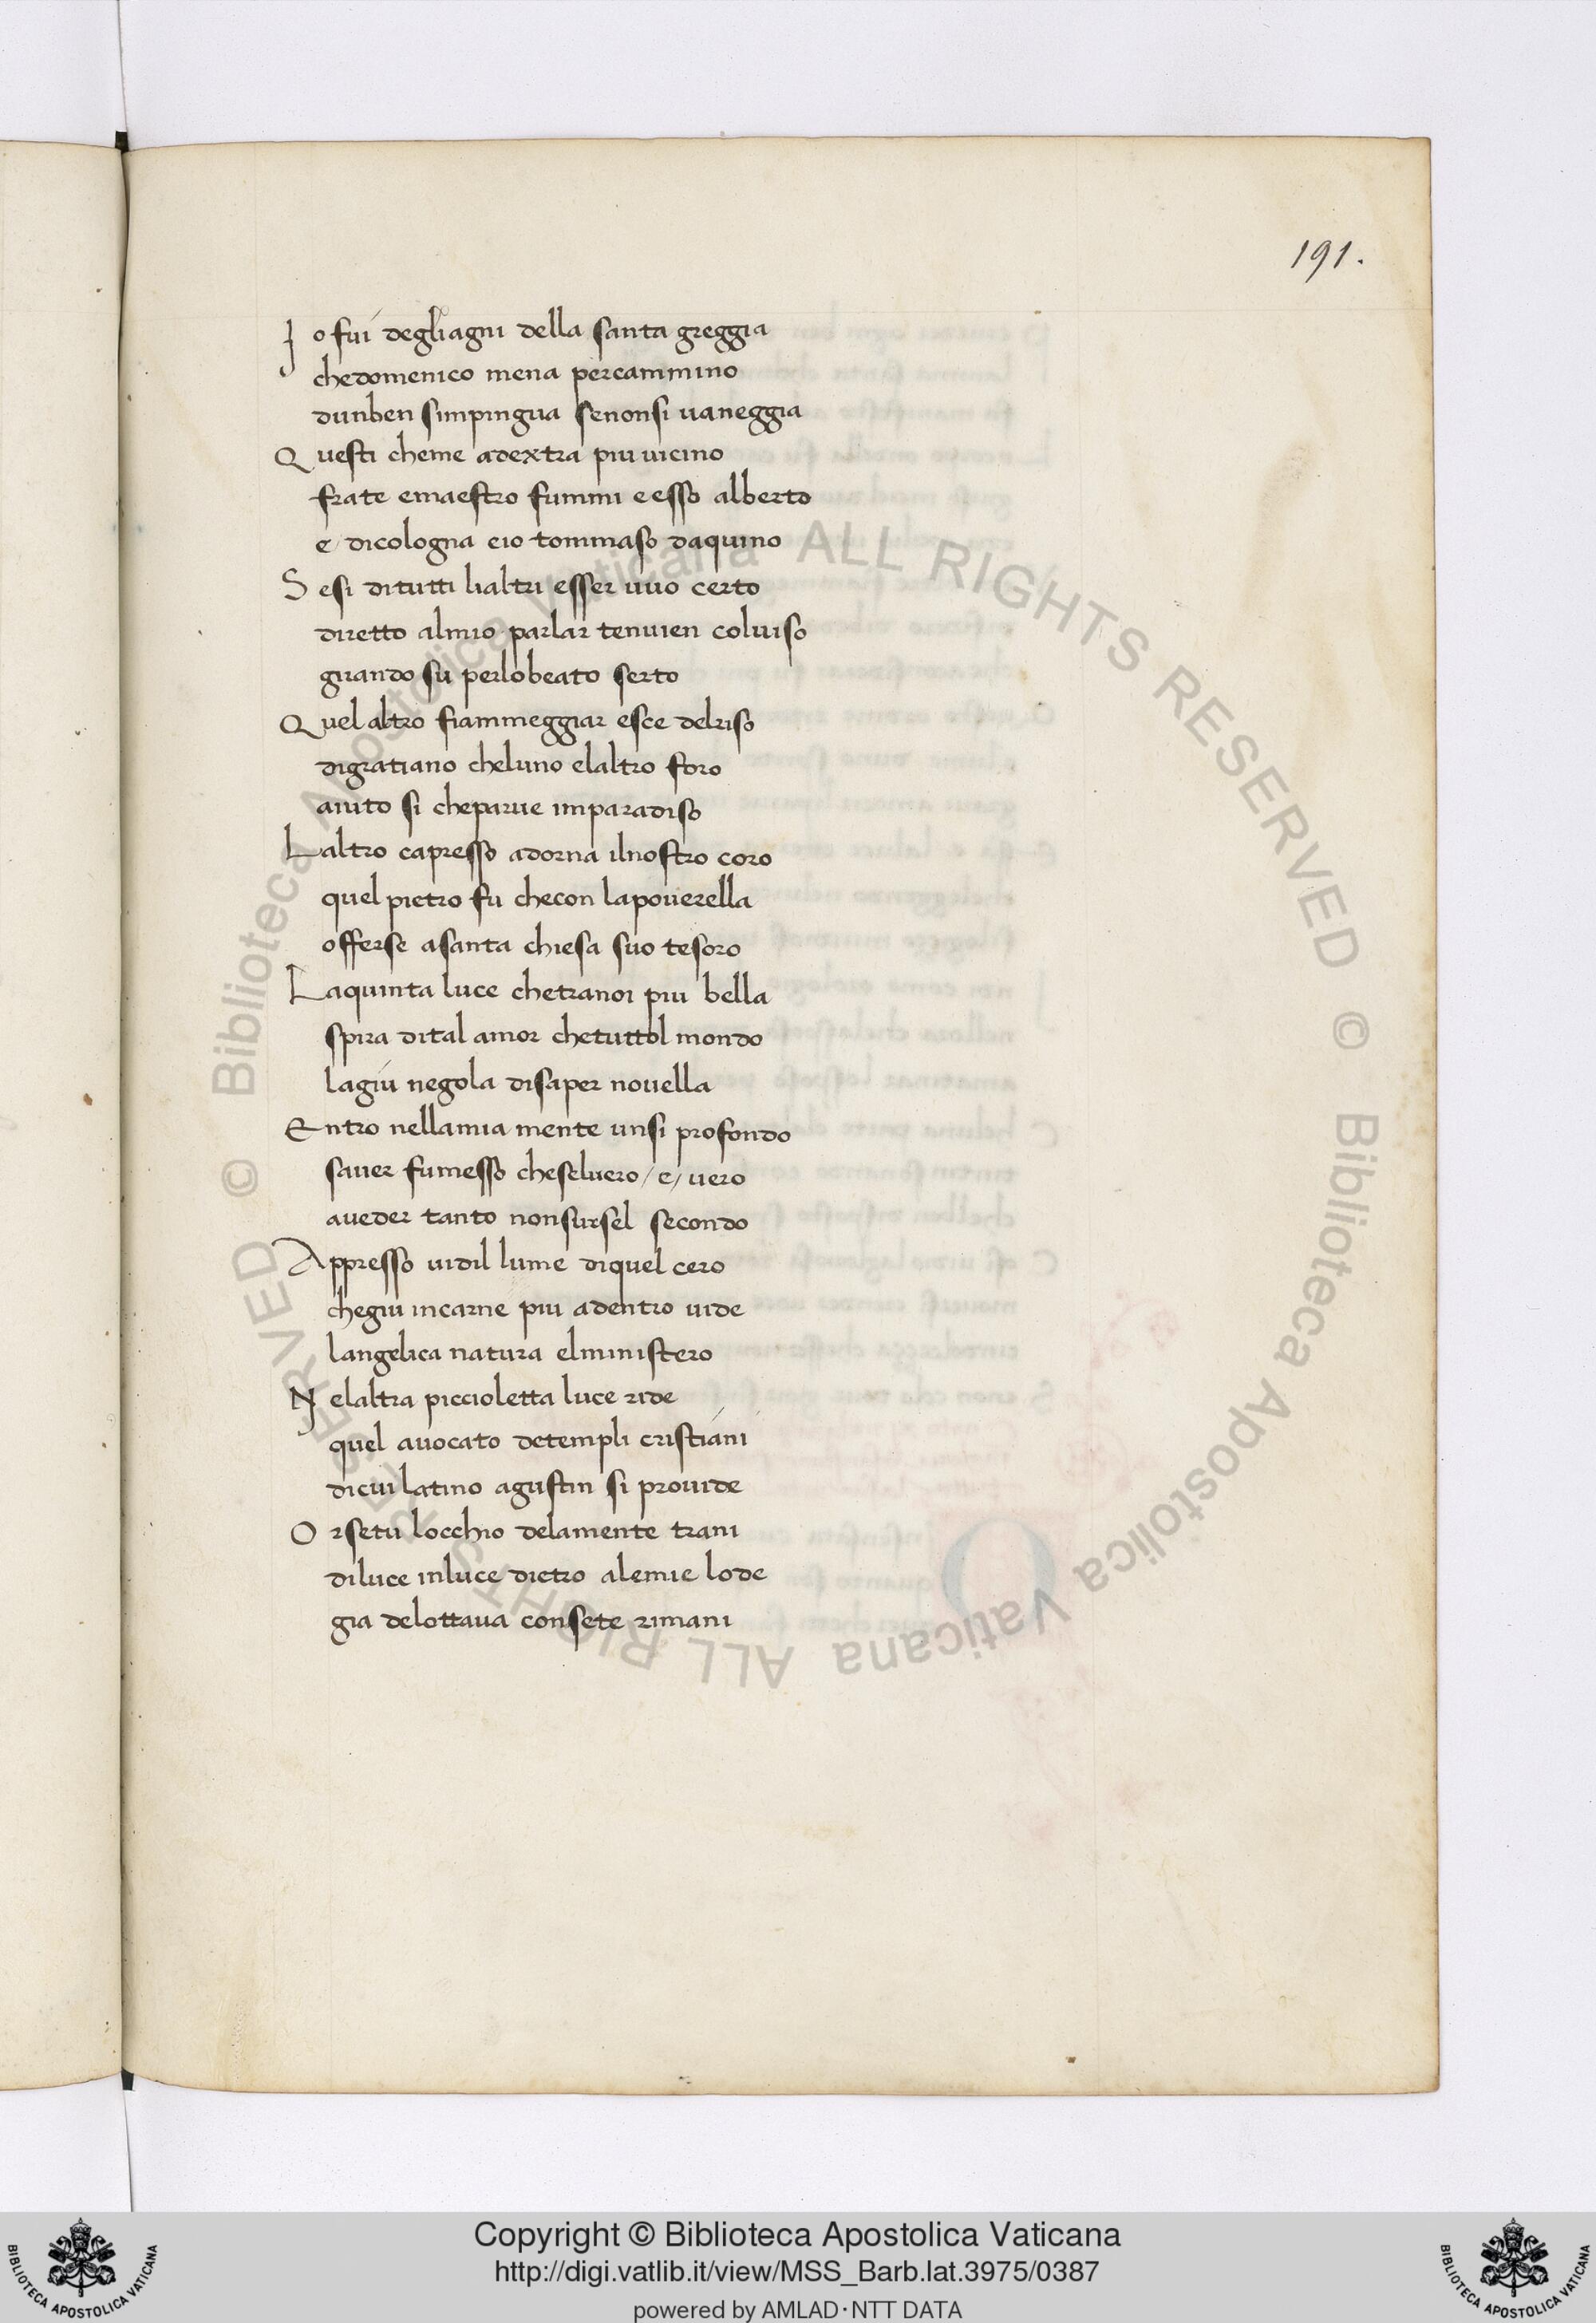 191.
Io fui degliagni della santa greggia
chedomenico mena percammino
dunben simpingua senonsi vaneggia
Questi cheme adextra piu vicino
frate emaestro fummi eesso alberto
e dicologna eio tommaso daquino
Sesi ditutti lialtri esser vuo certo
diretto almio parlar tenvien colviso
girando su perlobeato serto
Quel altro fiammeggiar esce delriso
digratiano cheluno elaltro foro
aiuto si cheparve imparadiso
Laltro capresso adorna ilnostro coro
quel pietro fu checon lapoverella
offerse asanta chiesa suo tesoro
Laquinta luce chetranoi piu bella
spira dital amor chetuttol mondo
lagiu negola disaper novella
Entro nellamia mente unsi profondo
saver fumesso cheselvero / e / vero
aveder tanto nonsursel secondo
Appresso vidil lume diquel cero
chegiu incarne piu adentro vide
langelica natura elministero
Nelaltra piccioletta luce ride
quel avocato detempli cristiani
dicui latino agustin si provide
Orsetu locchio delamente trani
diluce inluce dietro alemie lode
gia delottava consete rimani
© Biblioteca Apostolica Vaticana ALL RIGHTS RESERVED © Biblioteca Apostolica Vaticana ALL RIGHTS RESERVED
Copyright © Biblioteca Apostolica Vaticana
http://digi.vatlib.it/view/MSS_Barb.lat.3975/0387
powered by AMLAD·NTT DATA
BIBLIOTECA APOSTOLICA VATICANA
BIBLIOTECA APOSTOLICA VATICANA